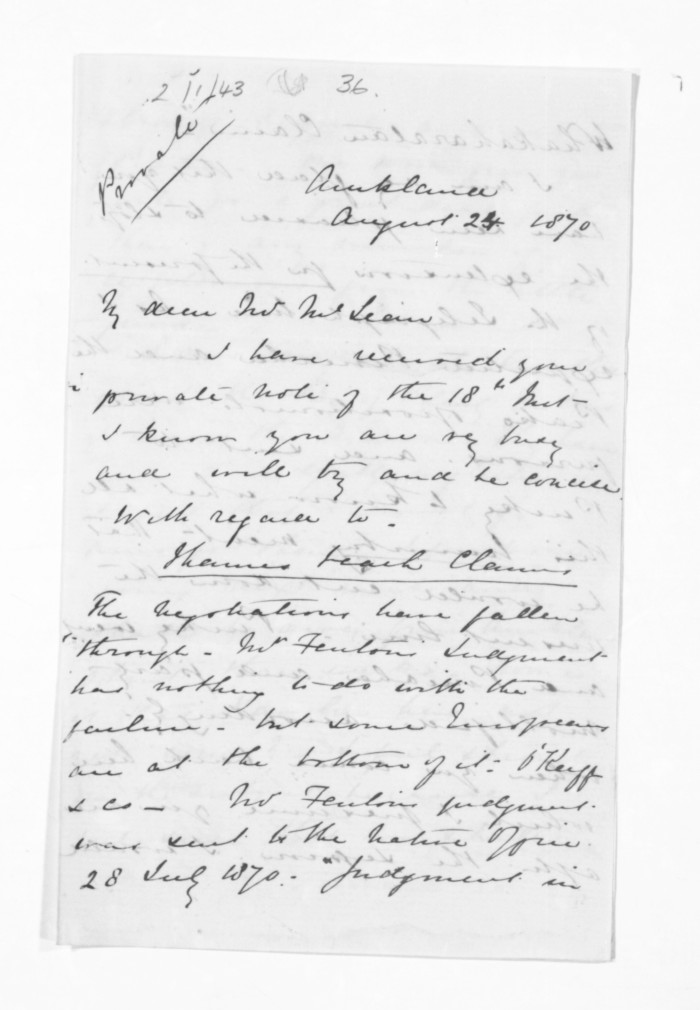 36.
Private
Auckland
August 24 1870
My dear Mr McLean
I have received your
private note of the 18th Inst
I know you are very busy
and will try and be concise.
With regard to -
Thames beach Claims
The negotiations have fallen
through - Mr Fenton's Judgment
has nothing to do with the
failure - but some Europeans
are at the bottom of it - O'Keeffe
& co - Mr Fenton's judgment
was sent to the native office
28 July 1870 - "Judgment in